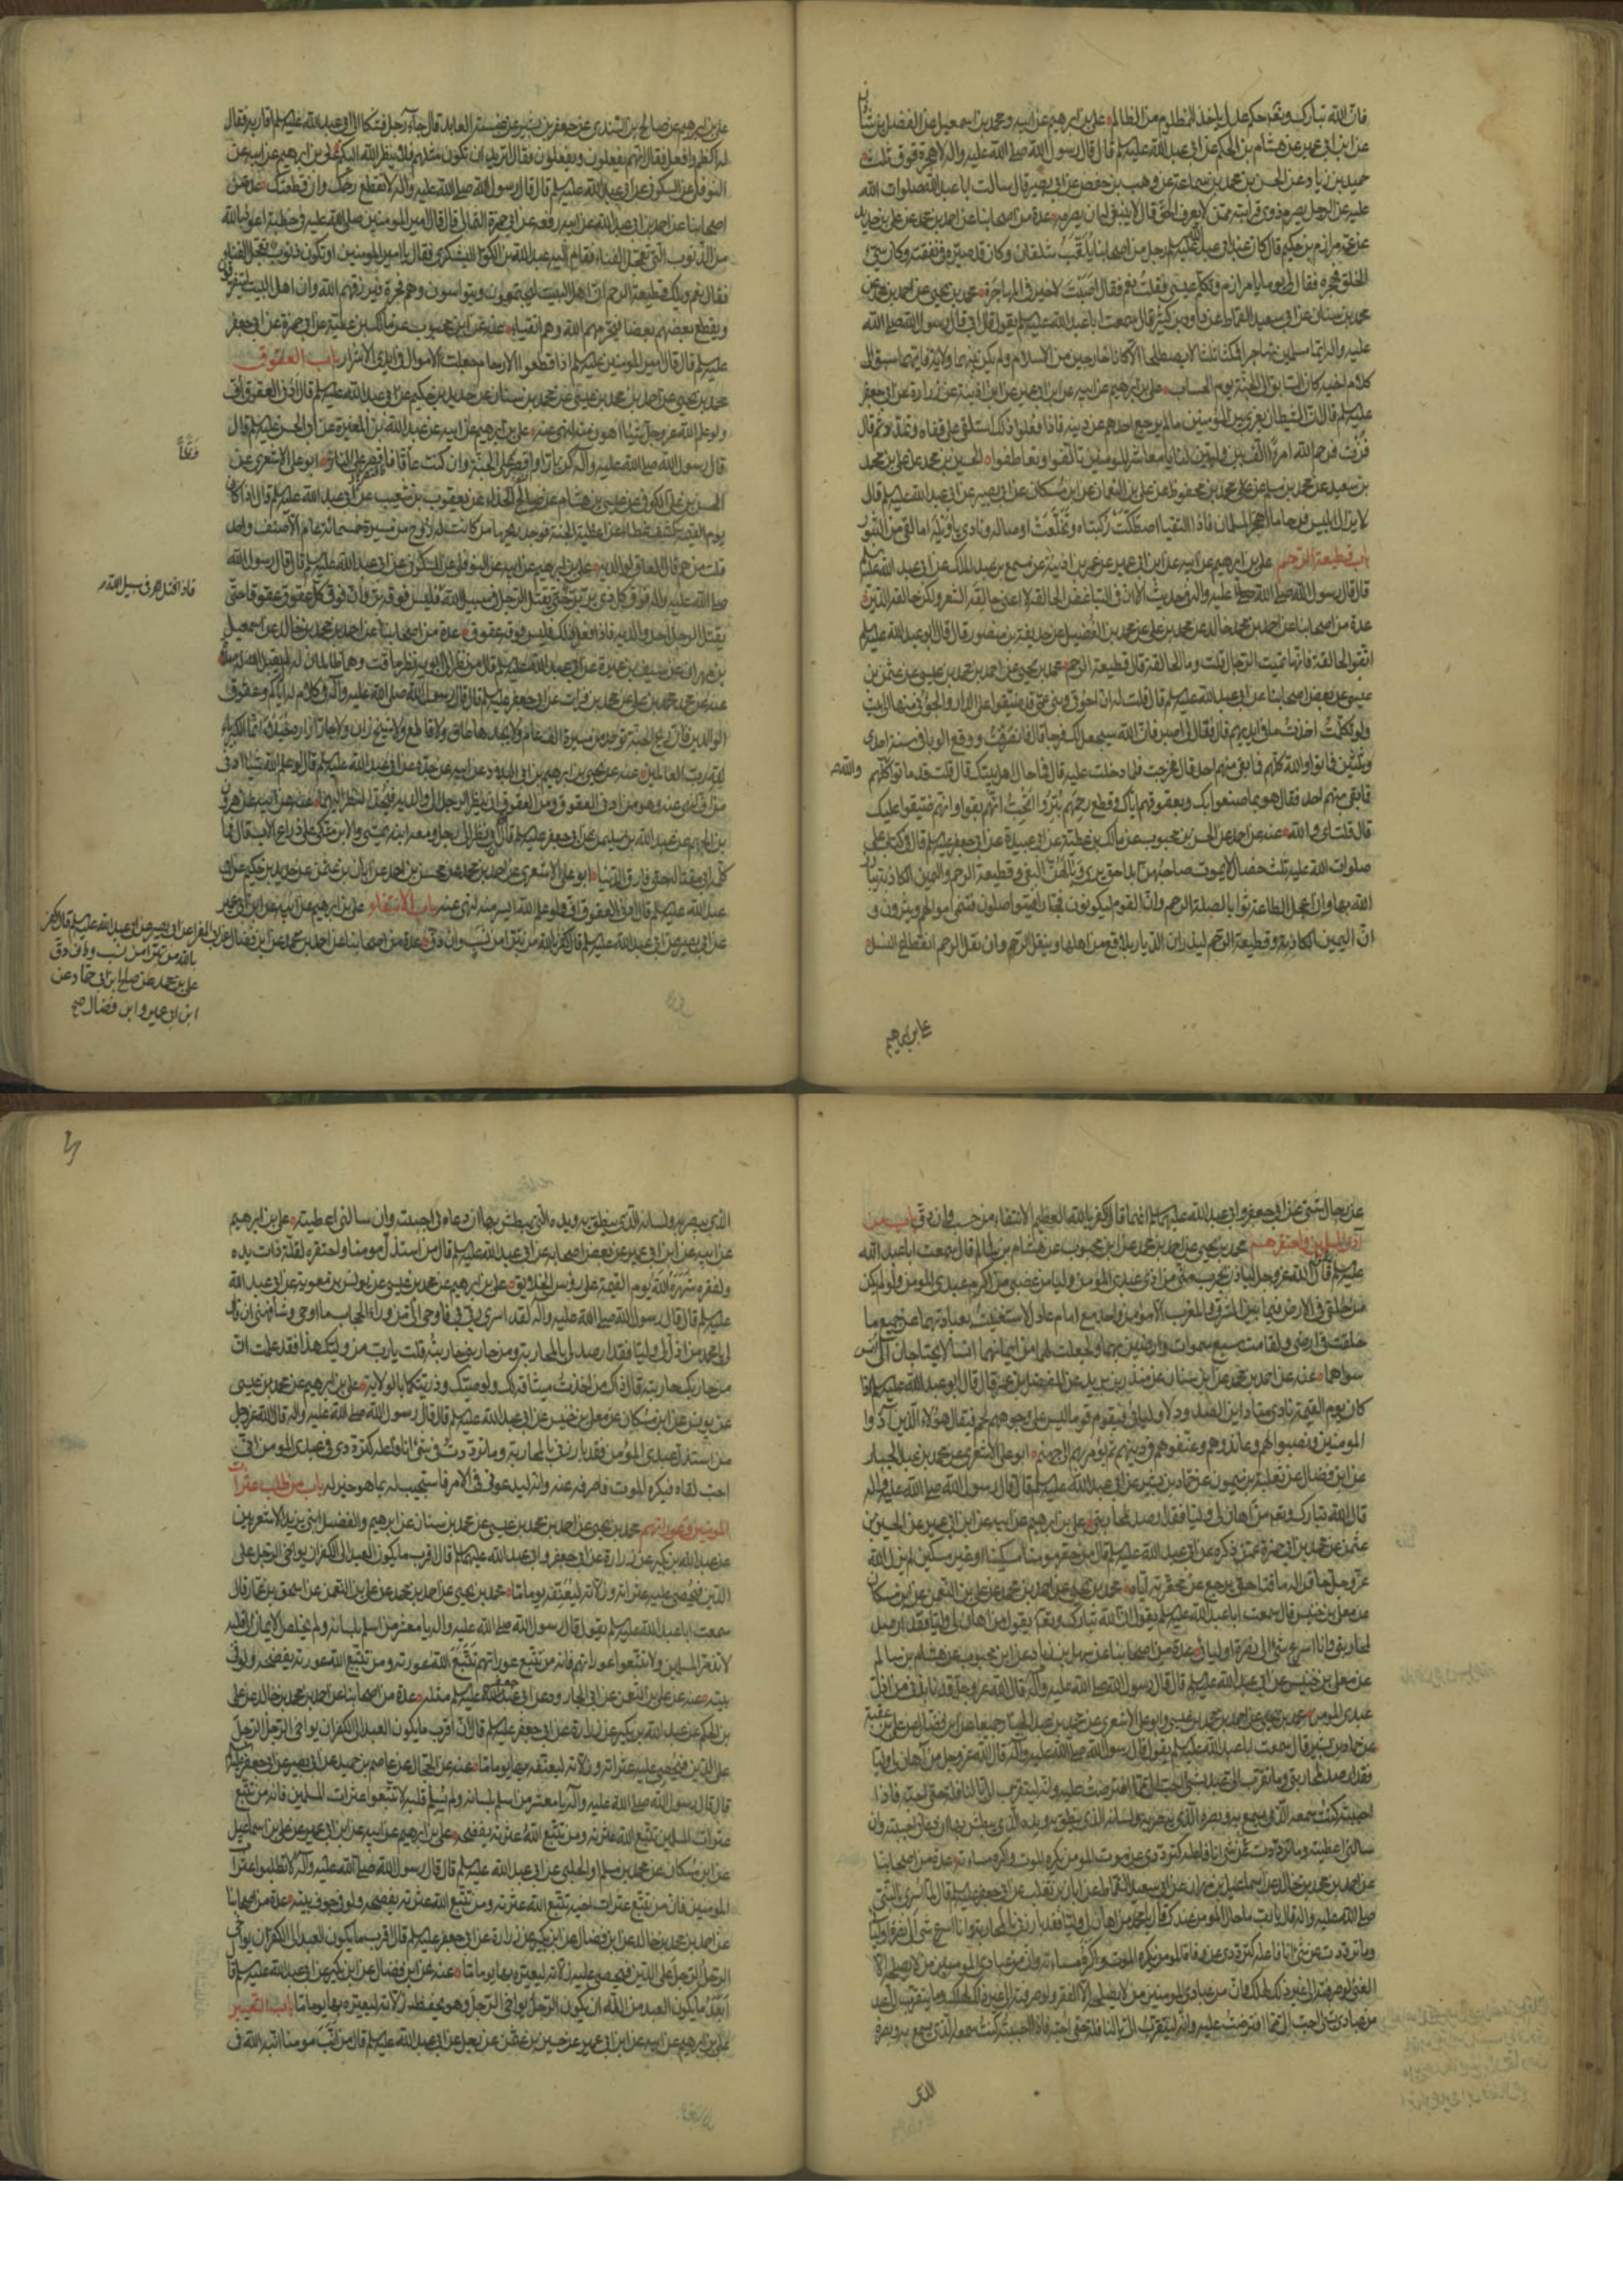 فان الله تبارك وتعالى حكم عدل ياخذ للمظلوم من الظالم علي بن ابرهيم عن ابيه ومحمد بن اسمعيل عن الفضل بن شاذان
عن ابن ابي عمير عن هشام بن الحكم عن ابي عبد الله عليه السلم قال قال رسول الله صلى الله عليه واله لا هجرة فوق ثلث
حميد بن زياد عن الحسن بن محمد بن سماعة عن وهب بن حفص عن ابي بصير قال سالت ابا عبد الله صلوات الله
عليه عن الرجل يصرم ذوي قرابته ممن لا يعرف الحق قال لا ينبغي له ان يصرمه عدة من اصحابنا عن احمد بن محمد عن علي بن حديد
عن عمه مرازم بن حكيم قال كان عند ابي عبد الله عليه السلم رجل من اصحابنا يلقب شلقان وكان قد صيره في نفقته وكان سيئ
الخلق فهجره فقال لي يوما يا مرازم وتكلم عيسى فقلت نعم فقال اصبت لا خير في المهاجرة محمد بن يحيى عن احمد بن محمد عن
محمد بن سنان عن ابي سعيد القماط عن داود بن كثير قال سمعت ابا عبد الله عليه السلم يقول قال ابي قال رسول الله صلى الله
عليه واله ايما مسلمين تهاجرا فمكثا ثلثا لا يصطلحا الا كانا خارجين من الاسلام ولم يكن بينهما ولاية فايهما سبق الى
كلام اخيه كان السابق الى الجنة يوم الحساب علي بن ابرهيم عن ابيه عن ابن ابي عمير عن ابن اذينة عن زرارة عن ابي جعفر
عليه السلم قال ان الشيطان يغري بين المومنين ما لم يرجع احدهم عن دينه فاذا فعلوا ذلك استلقى على قفاه وتمدد ثم قال
فزت فرحم الله امرءا الف بين وليين لنا يا معاشر المومنين تالفوا وتعاطفوا الحسين بن محمد عن علي بن محمد
بن سعيد عن محمد بن مسلم عن محمد بن محفوظ عن علي بن النعمان عن ابن مسكان عن ابي بصير عن ابي عبد الله عليه السلم قال
لا يزال ابليس فرحا ما اهتجر المسلمان فاذا التقيا اصطكت ركبتاه وتخلعت اوصاله ونادى يا ويله ما لقي من الثبور
باب قطيعة الرحم علي بن ابرهيم عن ابيه عن ابن ابي عمير عن عمر بن اذينة عن مسمع بن عبد الملك عن ابي عبد الله عليه السلم
قال قال رسول الله صلى الله عليه واله في حديث الا ان في التباغض الحالقة لا اعني حالقة الشعر ولكن حالقة الدين
عدة من اصحابنا عن احمد بن محمد خالد عن محمد بن علي عن محمد بن الفضيل عن حذيفة بن منصور قال قال ابو عبد الله عليه السلم
اتقوا الحالقة فانها تميت الرجال قلت وما الحالقة قال قطيعة الرحم محمد بن يحيى عن احمد بن محمد بن عيسى عن عثمن بن
عيسى عن بعض اصحابنا عن ابي عبد الله عليه السلم قال قلت له ان اخوتي وبني عمي قد ضيقوا على الدار والجؤني منها الى بيت
ولو تكلمت اخذت ما في ايديهم قال فقال لي اصبر فان الله سيجعل لك فرجا قال فانصرفت ووقع الوبا في سنة احدى
وثلثين فماتوا والله كلهم فما بقي منهم احد قال فخرجت فلما دخلت عليه قال ما حال اهل بيتك قال قلت قد ماتوا كلهم
والله
فما بقي منهم احد فقال هو بما صنعوا بك وبعقوقهم اياك وقطع رحمهم بتروا اتحب انهم بقوا وانهم ضيقوا عليك
قال قلت اي والله عنه عن احمد عن الحسن بن محبوب عن مالك بن عطية عن ابي عبيدة عن ابي جعفر عليه السلم قال في كتاب علي
صلوات الله عليه ثلث خصال لا يموت صاحبهن ابدا حتى يرى وبالهن البغي وقطيعة الرحم واليمين الكاذبة يبارز
الله بها وان اعجل الطاعة ثوابا لصلة الرحم وان القوم ليكونون فجارا فيتواصلون فتنمي اموالهم ويثرون و
ان اليمين الكاذبة وقطيعة الرحم ليذران الديار بلاقع من اهلها وينقل الرحم وان نقل الرحم انقطاع النسل
علي بن ابرهيم
علي بن ابرهيم عن صالح بن السندي عن جعفر بن بشير عن عنبسة العابد قال جاء رجل فشكا الى ابي عبد الله عليه السلم اقاربه فقال
له اكظم وافعل فقال انهم يفعلون ويفعلون فقال اتريد ان تكون مثلهم فلا ينظر الله اليكم علي بن ابرهيم عن ابيه عن
النوفلي عن السكوني عن ابي عبد الله عليه السلم قال قال رسول الله صلى الله عليه واله لا تقطع رحمك وان قطعتك عدة من
اصحابنا عن احمد بن ابي عبد الله عن ابيه رفعه عن ابي حمزة الثمالي قال قال امير المومنين صلى الله عليه في خطبته اعوذ بالله
من الذنوب التي تعجل الفناء فقام اليه عبد الله بن الكوا اليشكري فقال يا امير المومنين او تكون ذنوب تعجل الفناء
فقال نعم ويلك قطيعة الرحم ان اهل البيت ليجتمعون ويتواسون وهم فجرة فيرزقهم الله وان اهل البيت ليتفرقون
ويقطع بعضهم بعضا فيحرمهم الله وهم اتقياء عنه عن ابن محبوب عن مالك بن عطية عن ابي حمزة عن ابي جعفر
عليه السلم قال قال امير المومنين عليه السلم اذا قطعوا الارحام جعلت الاموال في ايدي الاشرار باب العقوق
محمد بن يحيى عن احمد بن محمد بن عيسى عن محمد بن سنان عن حديد بن حكيم عن ابي عبد الله عليه السلم قال ادنى العقوق اف
ولو علم الله عز وجل شيئا اهون منه لنهى عنه علي بن ابرهيم عن ابيه عن عبد الله بن المغيرة عن ابي الحسن عليه السلم قال
قال رسول الله صلى الله عليه واله كن بارا واقصر على الجنة وان كنت عاقا فاقصر على النار ابو علي الاشعري عن
الحسن بن علي الكوفي عن عبيس بن هشام عن صالح الحذاء عن يعقوب بن شعيب عن ابي عبد الله عليه السلم قال اذا كان
يوم القيمة كشف غطاء من اغطية الجنة فوجد ريحها من كانت له روح من مسيرة خمسمائة عام الا صنف واحد
قلت من هم قال العاق لوالديه علي بن ابرهيم عن ابيه عن النوفلي عن السكوني عن ابي عبد الله عليه السلم قال قال رسول الله
صلى الله عليه واله فوق كل ذي بر بر حتى يقتل الرجل في سبيل الله فليس فوقه بر وان فوق كل عقوق عقوقا حتى
فاذا قتل في سبيل الله
يقتل الرجل احد والديه فاذا فعل ذلك فليس فوقه عقوق عدة من اصحابنا عن احمد بن محمد بن خالد عن اسمعيل
بن مهران عن سيف بن عميرة عن ابي عبد الله عليه السلم قال من نظر الى ابويه نظر ماقت وهما ظالمان له لم يقبل الله له صلوة
عنه عن محمد بن علي عن محمد بن فرات عن ابي جعفر عليه السلم قال قال رسول الله صلى الله عليه واله في كلام له اياكم وعقوق
الوالدين فان ريح الجنة توجد من مسيرة الف عام ولا يجدها عاق ولا قاطع ولا شيخ زان ولا جار ازاره خيلاء انما الكبرياء
لله رب العالمين عنه عن يحيى بن ابرهيم بن ابي البلاد عن ابيه عن جده عن ابي عبد الله عليه السلم قال لو علم الله شيئا ادنى
من اف لنهى عنه وهو من ادنى العقوق ومن العقوق ان ينظر الرجل الى والديه فيحد النظر اليهما عنه عن ابيه عن هرون
بن الجهم عن عبد الله بن سليمن عن ابي جعفر عليه السلم قال ان ابي نظر الى رجل ومعه ابنه يمشي والابن متكئ على ذراع الاب قال فما
كلمه ابي مقتا له حتى فارق الدنيا ابو علي الاشعري عن احمد بن محمد عن محسن بن احمد عن ابان بن عثمن عن حديد بن حكيم عن ابي
عبد الله عليه السلم قال ادنى العقوق اف ولو علم الله ايسر منه لنهى عنه باب الانتفاء علي بن ابرهيم عن ابيه عن ابن ابي عمير
عن ابي بصير عن ابي عبد الله عليه السلم قال كفر بالله من تبرا من نسب وان دق عدة من اصحابنا عن احمد بن محمد عن ابن فضال عن
عن ابي بصير عن ابي عبد الله عليه السلم قال كفر
بالله من تبرا من نسب وان دق
علي بن محمد عن صالح ابن ابي حماد عن
ابن ابي عمير وابن فضال صح
عن رجال شتى عن ابي جعفر وابي عبد الله عليهما السلم انهما قالا كفر بالله العظيم الانتفاء من حسب وان دق باب من
آذى المسلمين واحتقرهم محمد بن يحيى عن احمد بن محمد عن ابن محبوب عن هشام بن سالم قال سمعت ابا عبد الله
عليه السلم يقول قال الله عز وجل لياذن بحرب مني من اذى عبدي المؤمن وليامن غضبي من اكرم عبدي المومن ولو لم يكن
من خلقي في الارض فيما بين المشرق والمغرب الا مومن واحد مع امام عادل لاستغنيت بعبادتهما عن جميع ما
خلقت في ارضي ولقامت سبع سموات وارضين بهما ولجعلت لهما من ايمانهما انسا لا يحتاجان الى انس
سواهما عنه عن احمد بن محمد عن ابن سنان عن منذر بن يزيد عن المفضل بن عمر قال قال ابو عبد الله عليه السلم اذا
كان يوم القيمة نادى مناد اين الصدود لاوليائي فيقوم قوم ليس على وجوههم لحم فيقال هؤلاء الذين آذوا
المومنين ونصبوا لهم وعاندوهم وعنفوهم في دينهم ثم يؤمر بهم الى جهنم ابو علي الاشعري عن محمد بن عبد الجبار
عن ابن فضال عن ثعلبة بن ميمون عن حماد بن بشير عن ابي عبد الله عليه السلم قال قال رسول الله صلى الله عليه واله
قال الله تبارك وتعالى من اهان لي وليا فقد ارصد لمحاربتي علي بن ابرهيم عن ابيه عن ابن ابي عمير عن الحسين بن
عثمن عن محمد بن ابي حمزة عمن ذكره عن ابي عبد الله عليه السلم قال من حقر مومنا مسكينا او غير مسكين لم يزل الله
عز وجل حاقرا له ماقتا حتى يرجع عن محقرته اياه محمد بن يحيى عن احمد بن محمد عن علي بن النعمن عن ابن مسكان
عن معلى بن خنيس قال سمعت ابا عبد الله عليه السلم يقول ان الله تبارك وتعالى يقول من اهان لي وليا فقد ارصد
لمحاربتي وانا اسرع شئ الى نصرة اوليائي عدة من اصحابنا عن سهل بن زياد عن ابن محبوب عن هشام بن سالم
عن معلى بن خنيس عن ابي عبد الله عليه السلم قال قال رسول الله صلى الله عليه واله قال الله عز وجل قد نابذني من اذل
عبدي المومن محمد بن يحيى عن احمد بن محمد بن عيسى وابو علي الاشعري عن محمد بن عبد الجبار جميعا عن ابن فضال عن علي بن عقبة
عن حماد بن بشير قال سمعت ابا عبد الله عليه السلم يقول قال رسول الله صلى الله عليه واله قال الله عز وجل من اهان لي وليا
فقد ارصد لمحاربتي وما تقرب الي عبد بشئ احب الي مما افترضت عليه وانه ليتقرب الي بالنافلة حتى احبه فاذا
احببته كنت سمعه الذي يسمع به وبصره الذي يبصر به ولسانه الذي ينطق به ويده التي يبطش بها ان دعاني اجبته وان
سالني اعطيته وما ترددت عن شئ انا فاعله كترددي عن موت المومن يكره الموت واكره مساءته عدة من اصحابنا
عن احمد بن محمد بن خالد عن اسماعيل بن مهران عن ابي سعيد القماط عن ابان بن تغلب عن ابي جعفر عليه السلم قال لما اسري بالنبي
صلى الله عليه واله قال يا رب ما حال المومن عندك قال يا محمد من اهان لي وليا فقد بارزني بالمحاربة وانا اسرع شئ الى نصرة اوليائي
وما ترددت عن شئ انا فاعله كترددي عن وفاة المومن يكره الموت واكره مساءته وان من عبادي المومنين من لا يصلحه الا
الغنى ولو صرفته الى غير ذلك لهلك وان من عبادي المومنين من لا يصلحه الا الفقر ولو صرفته الى غير ذلك لهلك وما يتقرب الي عبد
من عبادي بشئ احب الي مما افترضت عليه وانه ليتقرب الي بالنافلة حتى احبه فاذا احببته كنت سمعه الذي يسمع به وبصره
الذي
الذي يبصر به ولسانه الذي ينطق به ويده التي يبطش بها ان دعاني اجبته وان سالني اعطيته علي بن ابرهيم
عن ابيه عن ابن ابي عمير عن بعض اصحابه عن ابي عبد الله عليه السلم قال من استذل مومنا واحتقره لقلة ذات يده
ولفقره شهره الله يوم القيمة على رؤس الخلايق علي بن ابرهيم عن محمد بن عيسى عن يونس بن معوية عن ابي عبد الله
عليه السلم قال قال رسول الله صلى الله عليه واله لقد اسرى ربي بي فاوحى الي من وراء الحجاب ما اوحى وشافهني ان قال
لي يا محمد من اذل لي وليا فقد ارصد لي بالمحاربة ومن حاربني حاربته قلت يا رب من وليك هذا فقد علمت ان
من حاربك حاربته قال ذاك من اخذت ميثاقه لك ولوصيك وذريتكما بالولاية علي بن ابرهيم عن محمد بن عيسى
عن يونس عن ابن مسكان عن معلى بن خنيس عن ابي عبد الله عليه السلم قال قال رسول الله صلى الله عليه واله قال الله عز وجل
من استذل عبدي المؤمن فقد بارزني بالمحاربة وما ترددت في شئ انا فاعله كترددي في عبدي المومن اني
احب لقاه فيكره الموت فاصرفه عنه وانه ليدعوني في الامر فاستجيب له بما هو خير له باب من طلب عثرات
المومنين وعوراتهم محمد بن يحيى عن احمد بن محمد بن عيسى عن محمد بن سنان عن ابرهيم والفضل ابني يزيد الاشعريين
عن عبد الله بن بكير عن زرارة عن ابي جعفر وابي عبد الله عليهما السلم قالا اقرب ما يكون العبد الى الكفر ان يواخي الرجل على
الدين فيحصي عليه عثراته وزلاته ليعنفه يوما ما محمد بن يحيى عن احمد بن محمد عن علي بن النعمن عن اسحق بن عمار قال
سمعت ابا عبد الله عليه السلم يقول قال رسول الله صلى الله عليه واله يا معشر من اسلم بلسانه ولم يخلص الايمان الى قلبه
لا تذموا المسلمين ولا تتبعوا عوراتهم فانه من تتبع عوراتهم تتبع الله عورته ومن تتبع الله عورته يفضحه ولو في
بيته عنه عن علي بن النعمن عن ابي الجارود عن ابي جعفر عليه السلم مثله عدة من اصحابنا عن احمد بن محمد بن خالد عن علي
بن الحكم عن عبد الله بن بكير عن زرارة عن ابي جعفر عليه السلم قال ان اقرب ما يكون العبد الى الكفر ان يواخي الرجل الرجل
على الدين فيحصي عليه عثراته وزلاته ليعنفه بها يوما ما عنه عن الحجال عن عاصم بن حميد عن ابي بصير عن ابي جعفر عليه السلم
قال قال رسول الله صلى الله عليه واله يا معشر من اسلم بلسانه ولم يسلم قلبه لا تتبعوا عثرات المسلمين فانه من تتبع
عثرات المسلمين تتبع الله عثرته ومن تتبع الله عثرته يفضحه علي بن ابرهيم عن ابيه عن ابن ابي عمير عن علي بن اسماعيل
عن ابن مسكان عن محمد بن مسلم او الحلبي عن ابي عبد الله عليه السلم قال قال رسول الله صلى الله عليه واله لا تطلبوا عثرات
المومنين فان من تتبع عثرات اخيه تتبع الله عثرته ومن تتبع الله عثرته يفضحه ولو في جوف بيته عدة من اصحابنا
عن احمد بن محمد بن خالد عن ابن فضال عن ابن بكير عن زرارة عن ابي جعفر عليه السلم قال اقرب ما يكون العبد الى الكفر ان يواخي
الرجل الرجل على الدين فيحصي عليه زلاته ليعيره بها يوما ما عنه عن ابن فضال عن ابن بكير عن ابي عبد الله عليه السلم قال
ابعد ما يكون العبد من الله ان يكون الرجل يواخي الرجل وهو يحفظ زلاته ليعيره بها يوما ما باب التعيير
علي بن ابرهيم عن ابيه عن ابن ابي عمير عن حسين بن عثمن عن رجل عن ابي عبد الله عليه السلم قال من انب مومنا انبه الله في